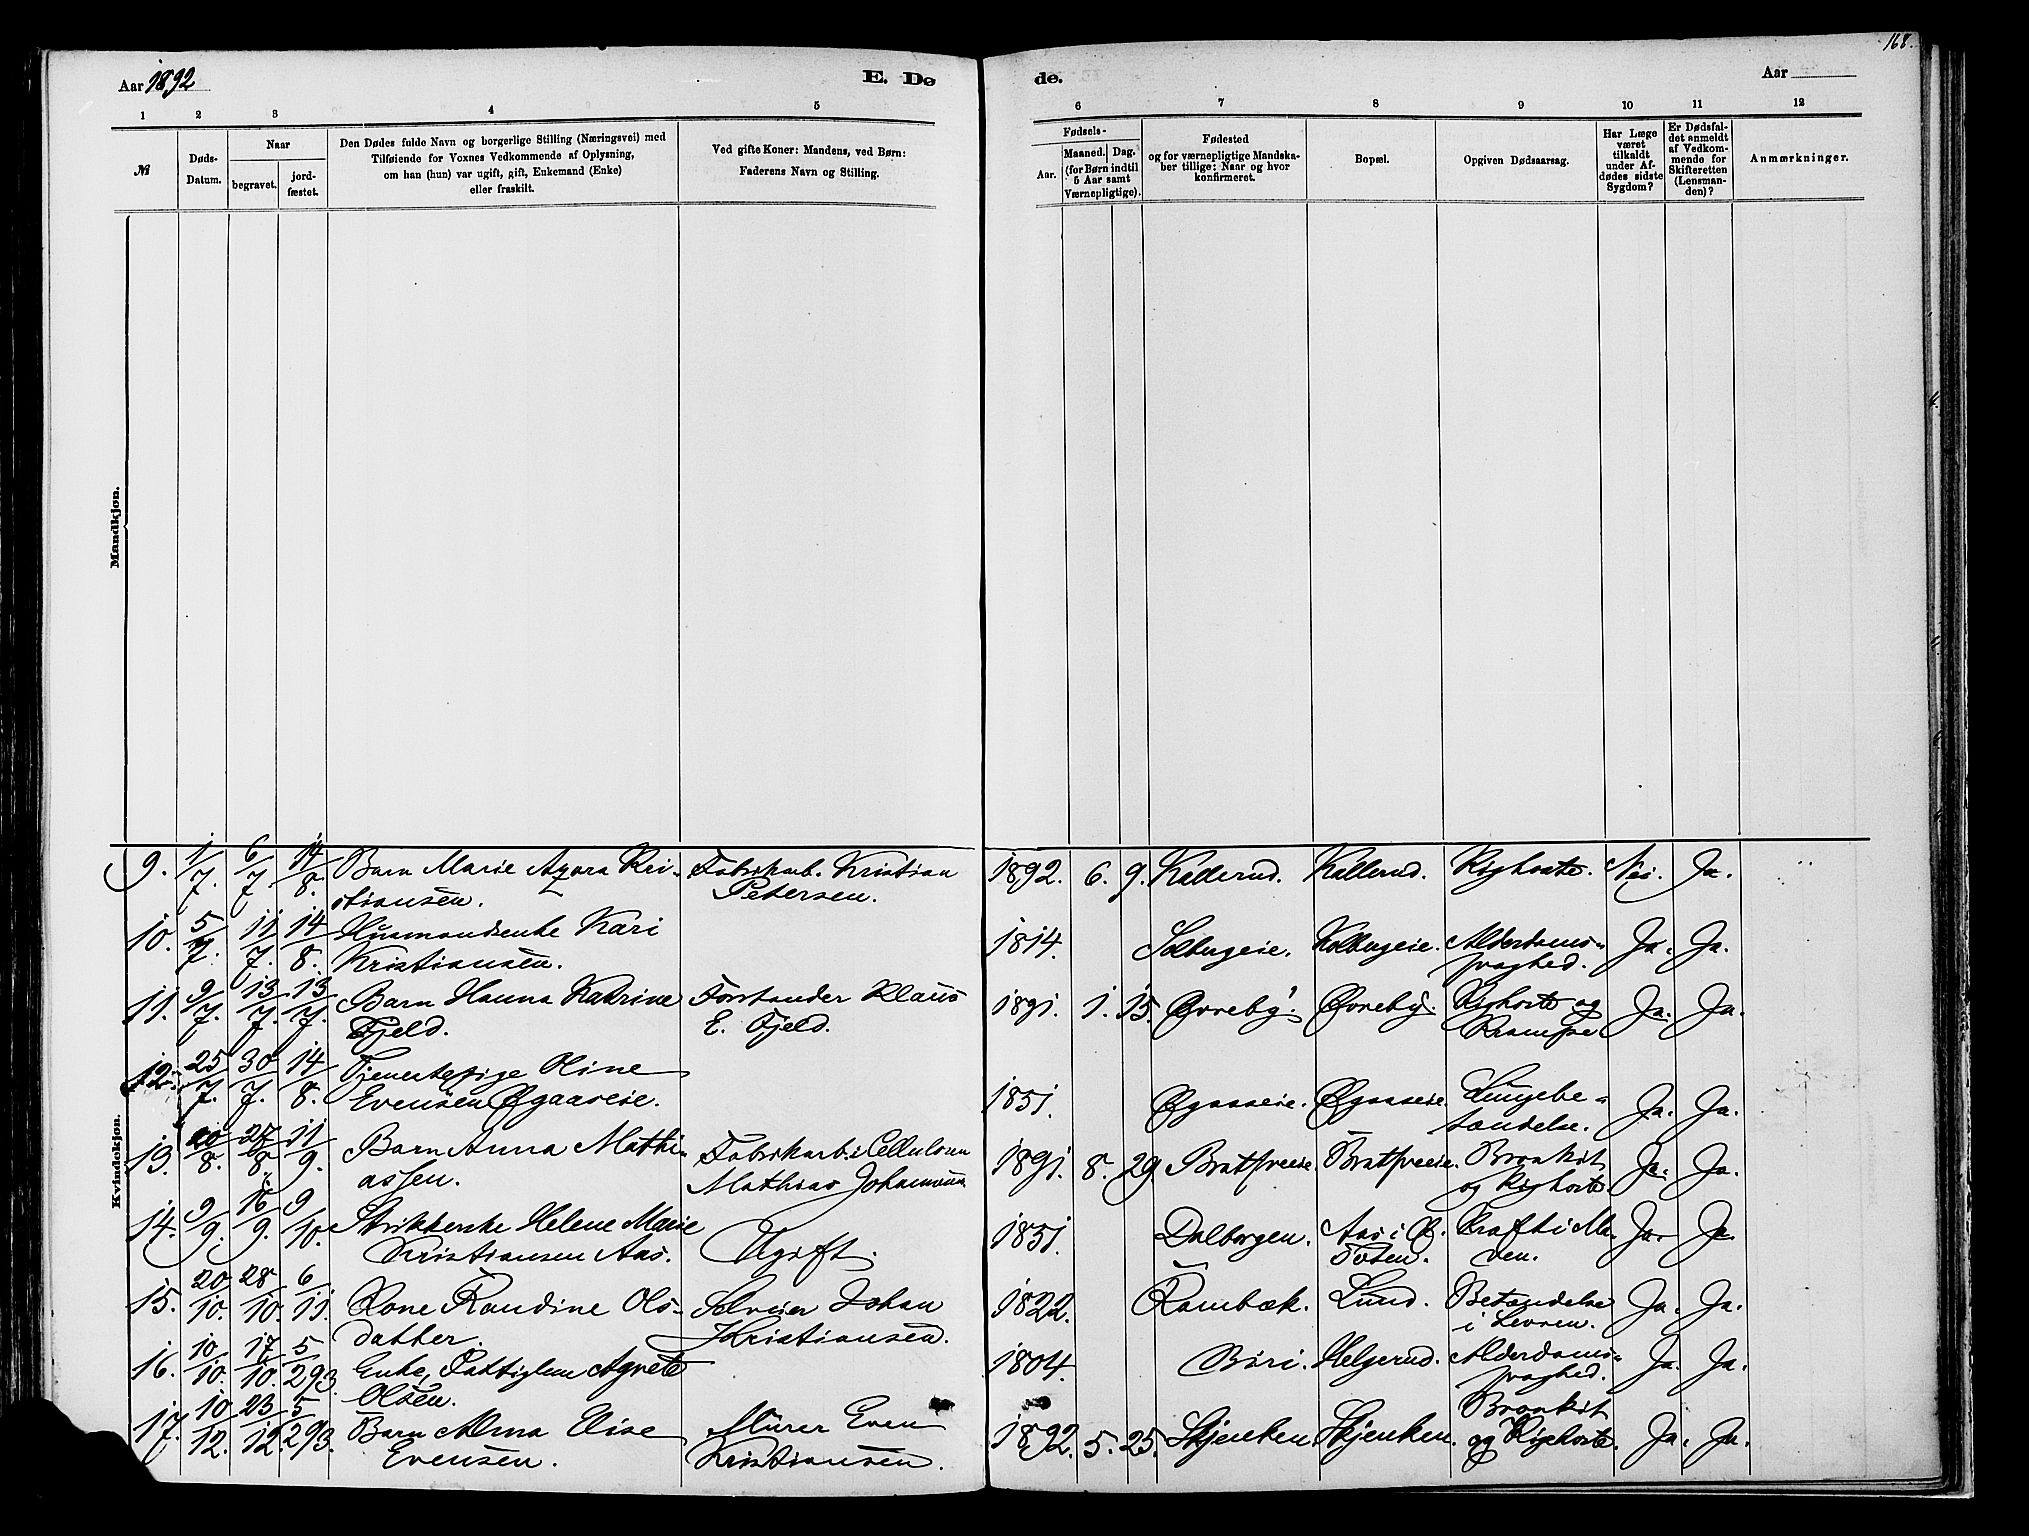 168.
Aar 1892
E. Dø
de.
Aar
1 2 3 4 5
6 7 8 9 10 11 12
№
Døds-
Datum.
Naar
begravet.
jord-
fæstet.
Den Dødes fulde Navn og borgerlige Stilling (Næringsvei) med
Tilføiende for Voxnes Vedkommende af Oplysning,
om han (hun) var ugift, gift, Enkemand (Enke)
eller fraskilt.
Ved gifte Koner: Mandens, ved Børn:
Faderens Navn og Stilling.
Fødsels-
Aar.
Maaned. Dag.
(for Børn indtil
5 Aar samt
Værnepligtige).
Fødested
og for værnepligtige Mandska-
ber tillige: Naar og hvor
konfirmeret.
Bopæl.
Opgiven Dødsaarsag.
Har Læge
været
tilkaldt
under Af-
dødes sidste
Sygdom?
Er Dødsfal-
det anmeldt
af Vedkom-
mende for
Skifteretten
(Lensman-
den)?
Anmærkninger.
Mandkjøn.
Kvindekjøn.
9. 1/7. 6/7 14/8. Barn Marie Agora Kri- Fabrikarb. Kristian 1892. 6. 9. Kallerud. Kallerud. Kighoste. Nei. Ja.
stiansen. Petersen.
10. 5/7. 11/7. 14/8. Husmandsenke Kari 1814. Solbergeie. Kolbergeie. Alderdoms- Ja. Ja.
Kristiansen. svaghed.
11. 9/7. 13/7. 13/7. Barn Hanna Katrine Forstander Klaus 1891. 1. 15. Øvreby. Øvreby. Kighoste og Ja. Ja.
Fjeld. E. Fjeld. Krampe
12. 25/7. 30/7. 14/8. Tjenestepige Oline 1851. Øgaaseie. Øgaaseie. Lungebe- Ja. Ja.
Evensen Øgaaseie. tændelse.
13. 20/8. 27/8 11/9. Barn Anna Mathi- Fabrikarb. i Cellulosen 1891. 8. 29. Bratfveeie. Bratfveeie. Bronkit Ja. Ja.
assen. Mathias Johannesen og Kighoste.
14. 9/9. 16/9. 9/10. Strikkerske Helene Marie Ugift. 1851. Dalborgen. Aas i Ø. Kræft i Ma- Ja. Ja
Kristiansen Aas. Toten. ven.
15. 20/10. 28/10. 6/11. Kone Randine Ols- Selveier Johan 1822. Rambæk. Lund. Betændelse Ja. Ja.
datter. Kristiansen. i Levren.
16. 10/10. 17/10. 5/2 93. Enke, Fattiglem Agnete 1804. Biri. Helgerud. Alderdoms- Ja. Ja.
Olsen. svaghed.
17. 10/12. 23/12. 5/2 93. Barn Alma Elise Murer Even 1892. 5. 25. Skjenken. Skjenken. Bronkit Ja. Ja.
Evensen. Kristiansen. og Kighoste.